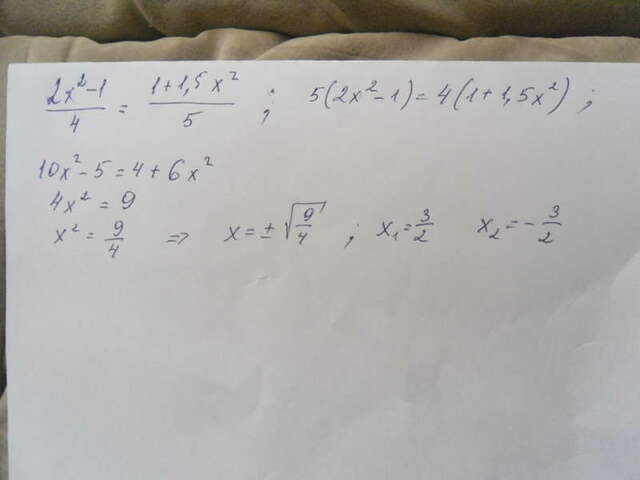 (2x²-1)/4 = (1+1,5x²)/5 ; 5(2x²-1)=4(1+1,5x²) ;
10x²-5=4+6x²
4x²=9
x²=9/4 => x=±√(9/4) ; x₁=3/2 x₂=-3/2